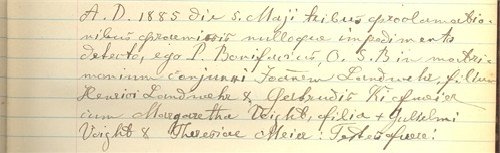 A. D. 1885 die 5. Maji tribus proclamatio-
nibus praemissis nulloque impedimento
detecto, ego P. Bonifacius, O. S. B in matri-
monium conjunxi Joanem Landwehr, filium
Henrici Landwehr & Gertrudis Kiefmeier
cum Margaretha Voight, filia + Gulielmi
Voight & Theresiae Meier: Testes fuere: